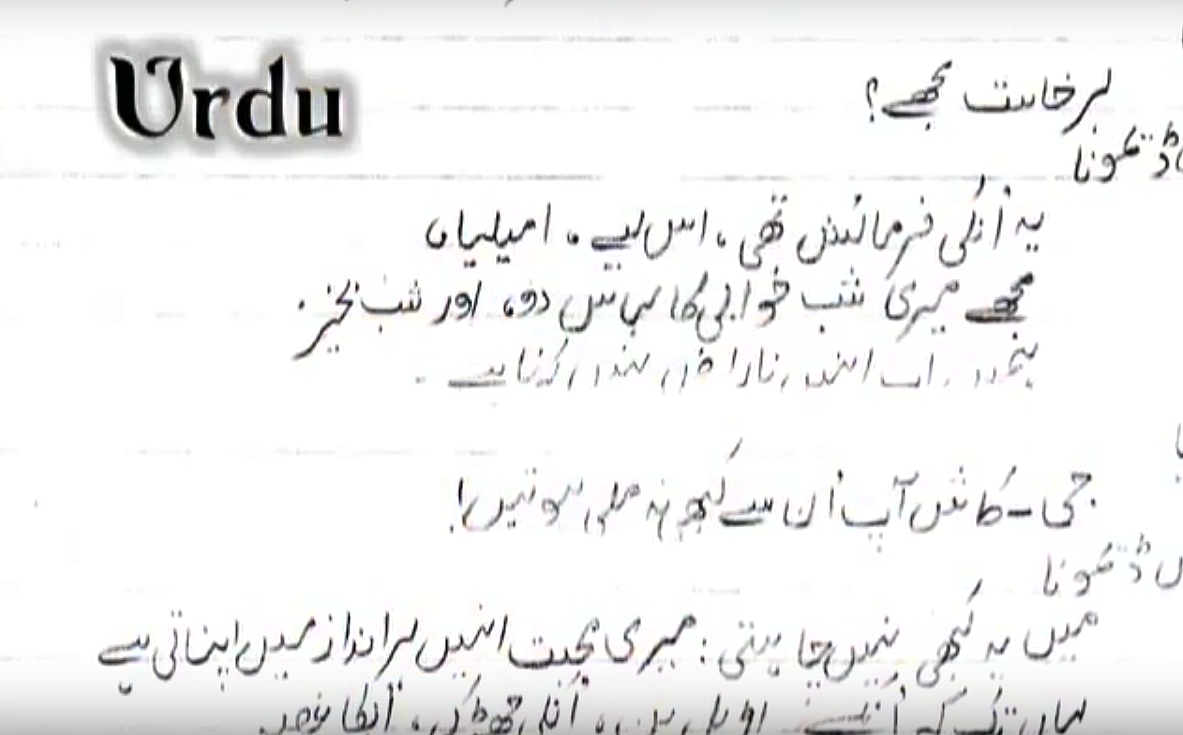 Urdu
برخاست مجھے؟
ڈیمونا
یہ اُنکی فرمائش تھی، اس لیے، امیلیا
مجھے میری شب خوابی کا لباس دو، اور شب بخیر۔
اب انہیں ناراض نہیں کرنا ہے۔
جی - کاش آپ اُن سے کبھی نہ ملی ہوتیں!
ڈیمونا
میں یہ کبھی نہیں چاہتی: میری محبت انہیں ہر انداز میں اپناتی ہے
یہاں تک کہ اُنکے